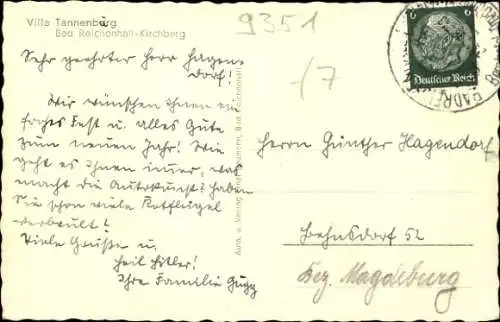 Villa Tannenburg
Bad Reichenhall-Kirchberg
9351
-/7
Sehr geehrter Herr Hagen-
dorf!
Wir wünschen Ihnen ein
frohes Fest u. alles Gute
zum neuen Jahr! Wie
geht es Ihnen immer, was
macht die Autokunst? Haben
Sie schon viele Kotflügel
verbeult!
Viele Grüße u.
Heil Hitler!
Ihre Familie Gugg
Aufn. u. Verlag Bad Reichenhall
6
Deutsches Reich
Herrn Günther Hagendorf
Behnsdorf 52
Bez. Magdeburg